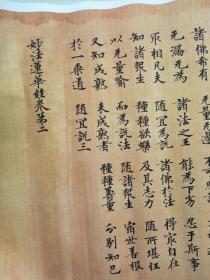 諸佛希有 無量無邊 不可思
無漏無為 諸法之王 能為下劣 忍于斯事
取相凡夫 隨宜為說 諸佛於法 得最自在
知諸眾生 種種欲樂 及其志力 隨所堪任
以無量喻 而為說法 隨諸眾生 宿世善根
又知成熟 未成熟者 種種籌量 分別知已
於一乘道 隨宜說三
妙法蓮華經卷第二